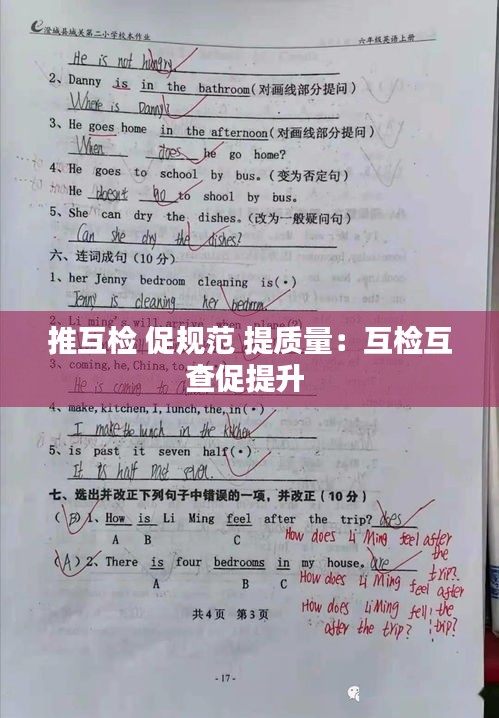 澄城县城关第二小学校本作业 六年级英语上册
He is not hungry.
2、Danny is in the bathroom(对画线部分提问)
Where is Danny?
3、He goes home in the afternoon(对画线部分提问)
When does he go home?
4、He goes to school by bus。(变为否定句)
He doesn't go to shool by bus。
5、She can dry the dishes。(改为一般疑问句)
Can she dry the dishes?
六、连词成句(10分)
1、her Jenny bedroom cleaning is(•)
Jenny is cleaning her bedroom.
推互检 促规范 提质量：互检互
查促提升
3、coming,he,China
4、make,kitchen,I,lunch,the,in(•)
I make the lunch in the kitchen
5、is past it seven half(•)
It is half past seven.
七、选出并改正下列句子中错误的一项，并改正(10分)
(B)1、How is Li Ming feel after the trip? does
A B C
How does Li Ming feel after the trip?
(A)2、There is four bedrooms in my house。are
A B C
How does Li Ming feel after the trip?
How does Li Ming fell after the trip?
共4页 第3页
-17-